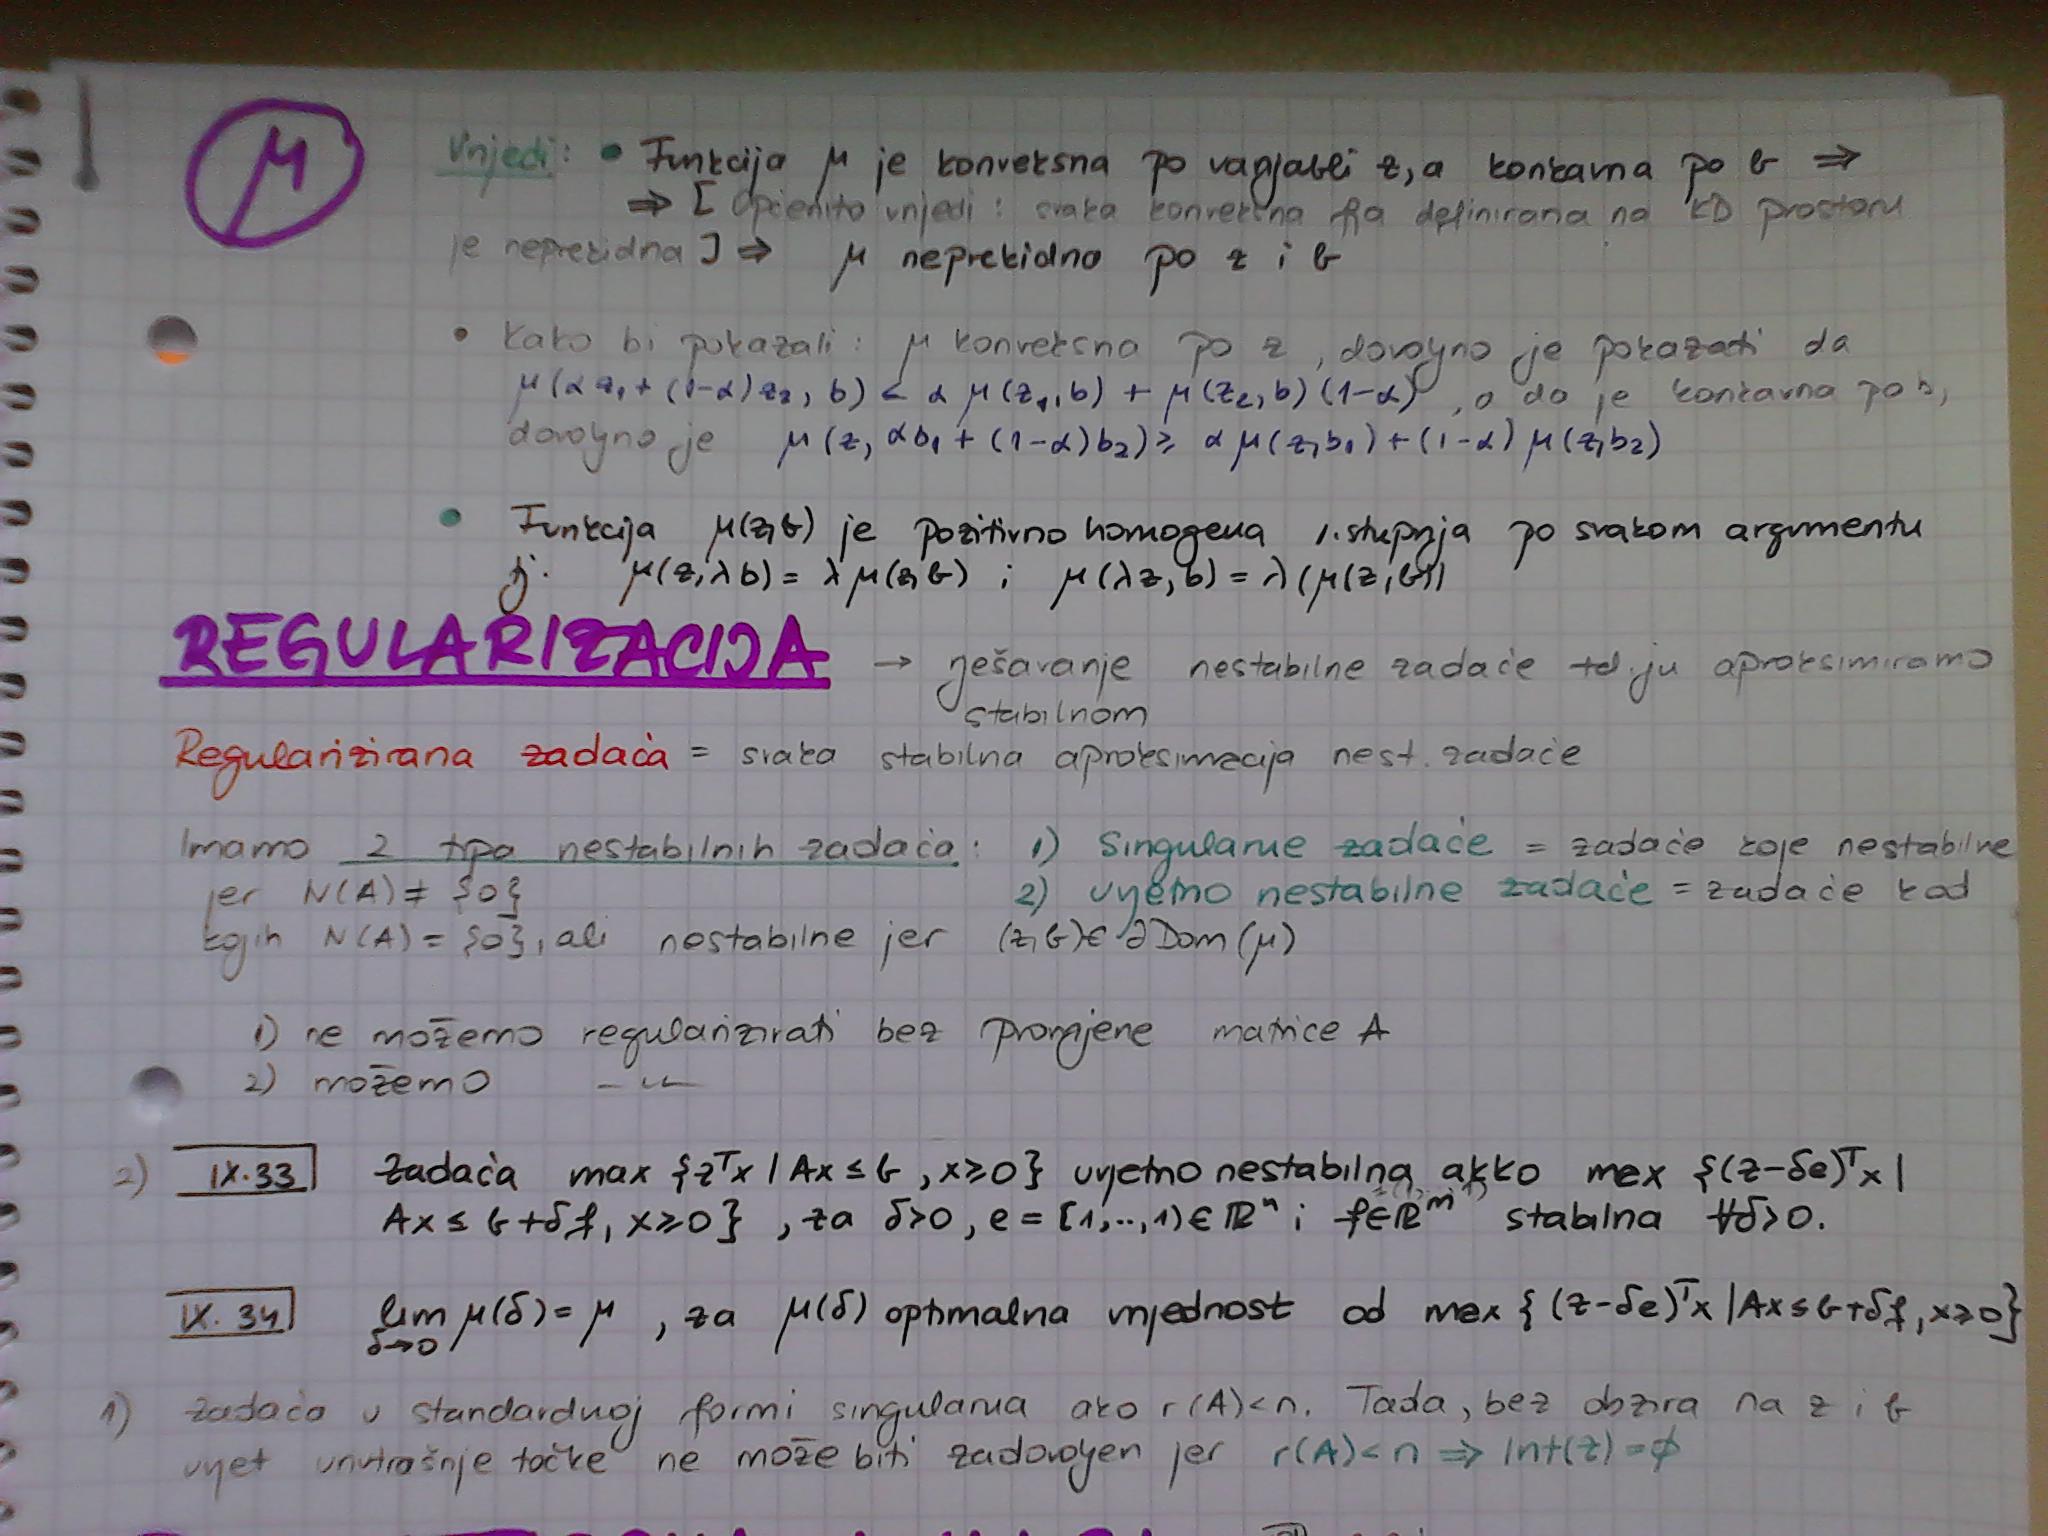 μ
Vrijedi: • Funkcija μ je konveksna po varijabli z, a konkavna po b ⇒
⇒ [Općenito vrijedi: svaka konveksna fja definirana na KD prostoru
je neprekidna] ⇒ μ neprekidno po z i b
• Kako bi pokazali: μ konveksna po z, dovoljno je pokazati da
μ(αz₁+(1-α)z₂, b) ≤ αμ(z₁,b) + μ(z₂,b)(1-α), a da je konkavna po b,
dovoljno je μ(z, αb₁+(1-α)b₂) ≥ αμ(z,b₁)+(1-α)μ(z,b₂)
• Funkcija μ(z,b) je pozitivno homogena 1. stupnja po svakom argumentu
tj. μ(z,λb) = λμ(z,b) i μ(λz,b) = λ(μ(z,b))
REGULARIZACIJA → rješavanje nestabilne zadaće td. ju aproksimiramo
stabilnom
Regularizirana zadaća = svaka stabilna aproksimacija nest. zadaće
Imamo 2 tipa nestabilnih zadaća: 1) Singularne zadaće = zadaće koje nestabilne
jer N(A) ≠ {0} 2) uvjetno nestabilne zadaće = zadaće kod
kojih N(A) = {0}, ali nestabilne jer (z,b) ∈ ∂Dom(μ)
1) ne možemo regularizirati bez promjene matrice A
2) možemo -"-
2) IX.33 Zadaća max {zᵀx | Ax ≤ b, x ≥ 0} uvjetno nestabilna akko max {(z-δe)ᵀx |
Ax ≤ b+δf, x ≥ 0}, za δ>0, e = [1,..,1) ∈ ℝⁿ i f ∈ ℝᵐ stabilna ∀δ>0.
IX.34 lim δ→0 μ(δ) = μ, za μ(δ) optimalna vrijednost od max {(z-δe)ᵀx | Ax ≤ b+δf, x ≥ 0}
1) zadaća u standardnoj formi singularna ako r(A)<n. Tada, bez obzira na z i b
uvjet unutrašnje točke ne može biti zadovoljen jer r(A)<n ⇒ Int(z) = ∅